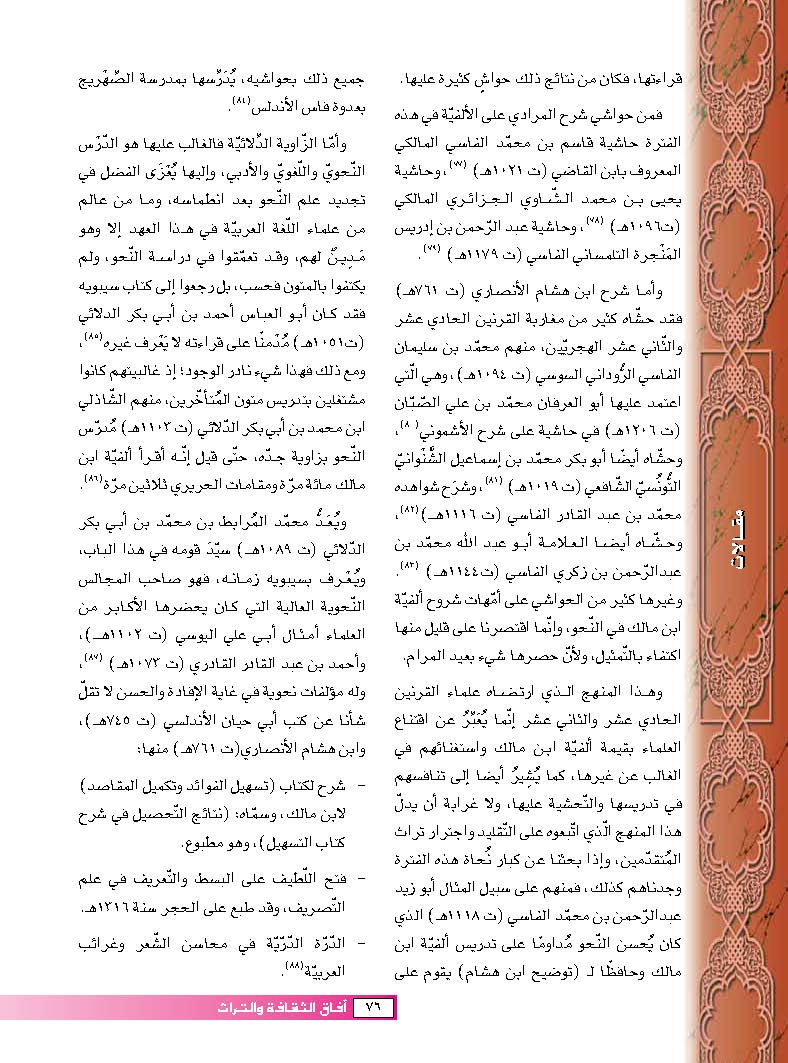 قراءتها، فكان من نتائج ذلك حواشٍ كثيرة عليها.
فمن حواشي شرح المرادي على الألفيّة في هذه
الفترة حاشية قاسم بن محمّد الفاسي المالكي
المعروف بابن القاضي (ت ١٠٢١هـ) (٧٧)، وحاشية
يحيى بن محمد الشّاوي الجزائري المالكي
(ت١٠٩٦هـ) (٧٨)، وحاشية عبد الرّحمن بن إدريس
المَنْجرة التلمساني الفاسي (ت ١١٧٩هـ) (٧٩).
وأما شرح ابن هشام الأنصاري (ت ٧٦١هـ)
فقد حشّاه كثير من مغاربة القرنين الحادي عشر
والثّاني عشر الهجريّين، منهم محمّد بن سليمان
الفاسي الرُّوداني السوسي (ت ١٠٩٤هـ)، وهي الّتي
اعتمد عليها أبو العرفان محمّد بن علي الصّبّان
(ت ١٢٠٦هـ) في حاشية على شرح الأشموني(٨٠)،
وحشّاه أيضًا أبو بكر محمّد بن إسماعيل الشّنْوانيّ
التُّونُسيّ الشّافعي (ت ١٠١٩هـ) (٨١)، وشرَح شواهده
محمّد بن عبد القادر الفاسي (ت ١١١٦هـ)(٨٢)،
وحشّاه أيضا العلامة أبو عبد الله محمّد بن
عبدالرّحمن بن زكري الفاسي (ت١١٤٤هـ) (٨٣).
وغيرها كثير من الحواشي على أمّهات شروح ألفيّة
ابن مالك في النّحو، وإنّما اقتصرنا على قليل منها
اكتفاء بالتّمثيل، ولأنّ حصرها شيء بعيد المرام.
وهذا المنهج الذي ارتضاه علماء القرنين
الحادي عشر والثاني عشر إنّما يُعَبِّرُ عن اقتناع
العلماء بقيمة ألفيّة ابن مالك واستغنائهم في
الغالب عن غيرها، كما يُشِيرُ أيضا إلى تنافسهم
في تدريسها والتّحشية عليها، ولا غرابة أن يدلّ
هذا المنهج الّذي اتّبعوه على التّقليد واجترار تراث
المُتقدّمين، وإذا بحثنا عن كبار نُحاة هذه الفترة
وجدناهم كذلك، فمنهم على سبيل المثال أبو زيد
عبدالرّحمن بن محمّد الفاسي (ت ١١١٨هـ) الذي
كان يُحسن النّحو مُداومًا على تدريس ألفيّة ابن
مالك وحافظًا لـ (توضيح ابن هشام) يقوم على
جميع ذلك بحواشيه، يُدَرِّسها بمدرسة الصّهْريج
بعدوة فاس الأندلس(٨٤).
وأمّا الزّاوية الدِّلائيّة فالغالب عليها هو الدّرْس
النّحويّ واللّغويّ والأدبي، وإليها يُعْزَى الفضل في
تجديد علم النّحو بعد انطماسه، وما من عالم
من علماء اللّغة العربيّة في هذا العهد إلا وهو
مَدِينٌ لهم، وقد تعمّقوا في دراسة النّحو، ولم
يكتفوا بالمتون فحسب، بل رجعوا إلى كتاب سيبويه
فقد كان أبو العباس أحمد بن أبي بكر الدلائي
(ت١٠٥١هـ) مُدْمنًا على قراءته لا يَعْرف غيره(٨٥)،
ومع ذلك فهذا شيء نادر الوجود؛ إذ غالبيتهم كانوا
مشتغلين بتدريس متون المُتأخّرين، منهم الشّاذلي
ابن محمد بن أبي بكر الدّلائي (ت ١١٠٣هـ) مُدرّس
النّحو بزاوية جدّه، حتّى قيل إنّه أقرأ ألفيّة ابن
مالك مائة مرّة ومقامات الحريري ثلاثين مرّة(٨٦).
ويُعَدُّ محمّد المُرابط بن محمّد بن أبي بكر
الدّلائي (ت ١٠٨٩هـ) سيّدَ قومه في هذا الباب،
ويُعْرف بسيبويه زمانه، فهو صاحب المجالس
النّحوية العالية التي كان يحضرها الأكابر من
العلماء أمثال أبي علي اليوسي (ت ١١٠٢هـ)،
وأحمد بن عبد القادر القادري (ت ١٠٧٣هـ) (٨٧)،
وله مؤلفات نحوية في غاية الإفادة والحسن لا تقلّ
شأنا عن كتب أبي حيان الأندلسي (ت ٧٤٥هـ)،
وابن هشام الأنصاري(ت ٧٦١هـ) منها:
- شرح لكتاب (تسهيل الفوائد وتكميل المقاصد)
لابن مالك، وسمّاه: (نتائج التّحصيل في شرح
كتاب التسهيل)، وهو مطبوع.
- فتح اللّطيف على البسط والتّعريف في علم
التّصريف، وقد طبع على الحجر سنة ١٣١٦هـ.
- الدّرّة الدّرّيّة في محاسن الشّعر وغرائب
العربيّة(٨٨).
مقالات
٧٦ آفاق الثقافة والتراث